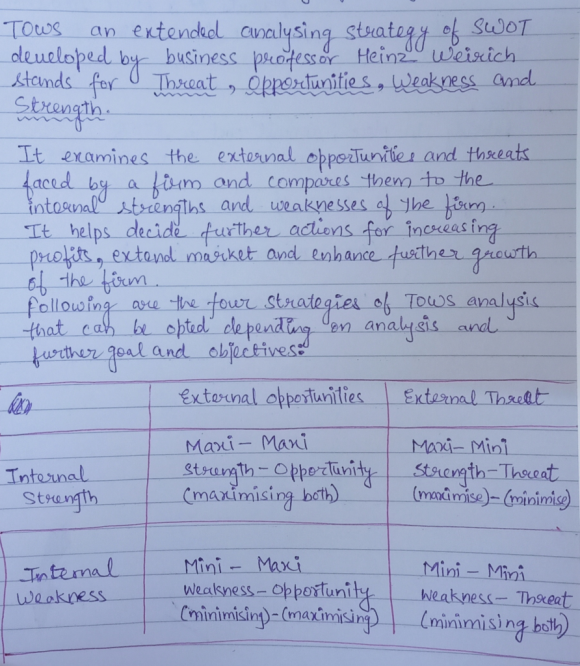 TOWS an extended analysing strategy of SWOT
developed by business professor Heinz Weirich
stands for Threat, Opportunities, Weakness and
Strength.
It examines the external opportunities and threats
faced by a firm and compares them to the
internal strengths and weaknesses of the firm.
It helps decide further actions for increasing
profits, extend market and enhance further growth
of the firm.
Following are the four strategies of TOWS analysis
that can be opted depending on analysis and
further goal and objectives:
External Opportunities External Threat
Internal Strength
Maxi - Maxi
Strength - Opportunity
(maximising both)
Maxi - Mini
Strength - Threat
(maximise) - (minimise)
Internal Weakness
Mini - Maxi
Weakness - Opportunity
(minimising) - (maximising)
Mini - Mini
Weakness - Threat
(minimising both)